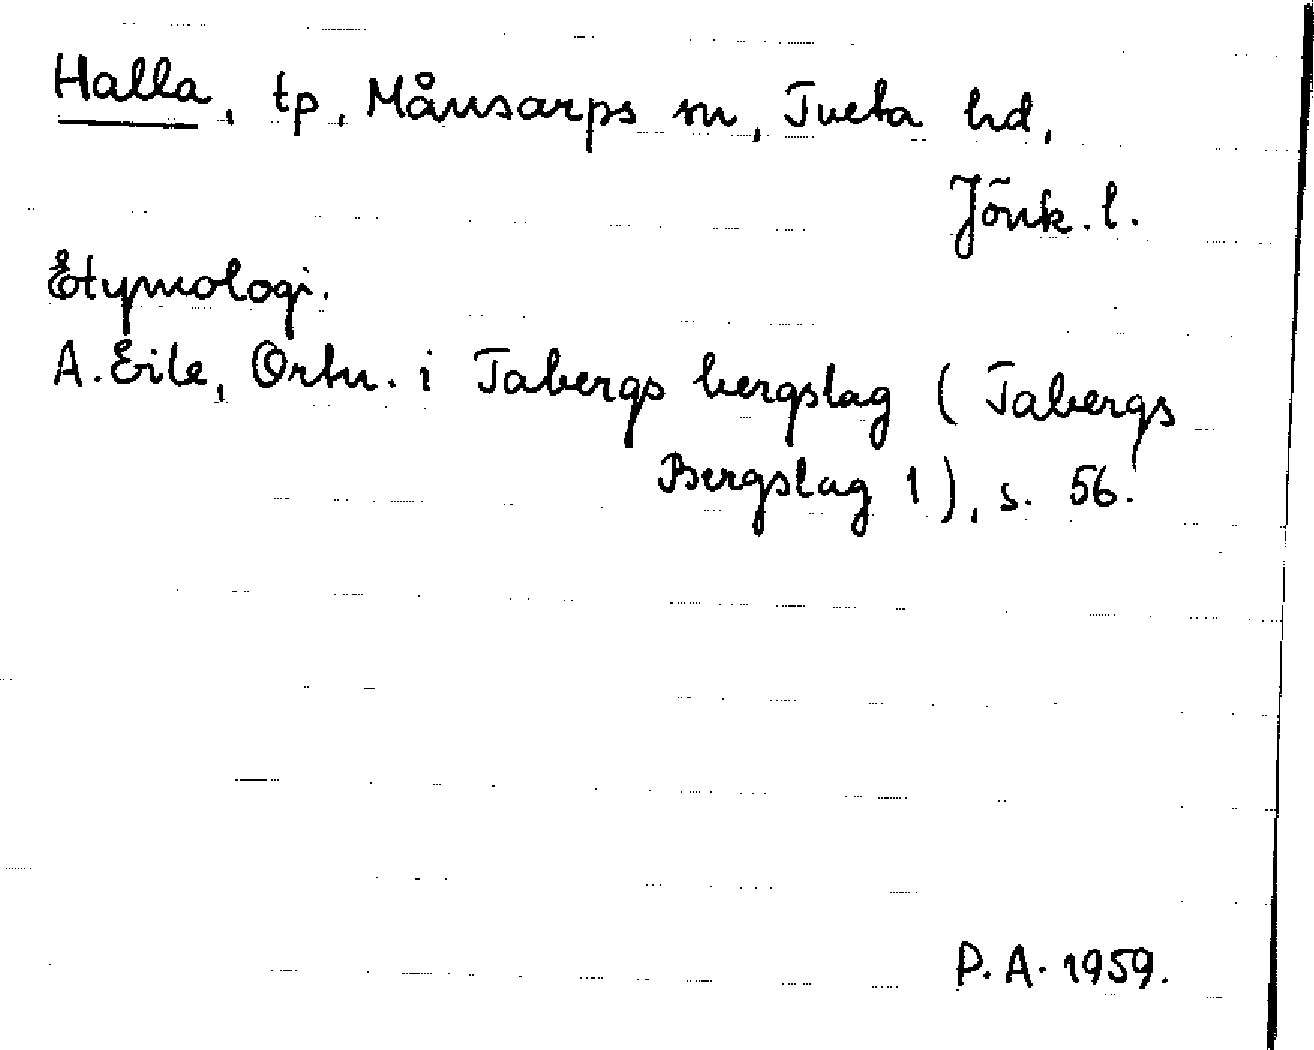 Halla, tp, Månsarps sn, Tveta hd,
Jönk. l.
Etymologi.
A. Eile, Ortn. i Tabergs bergslag (Tabergs
Bergslag 1), s. 56.
P. A. 1959.